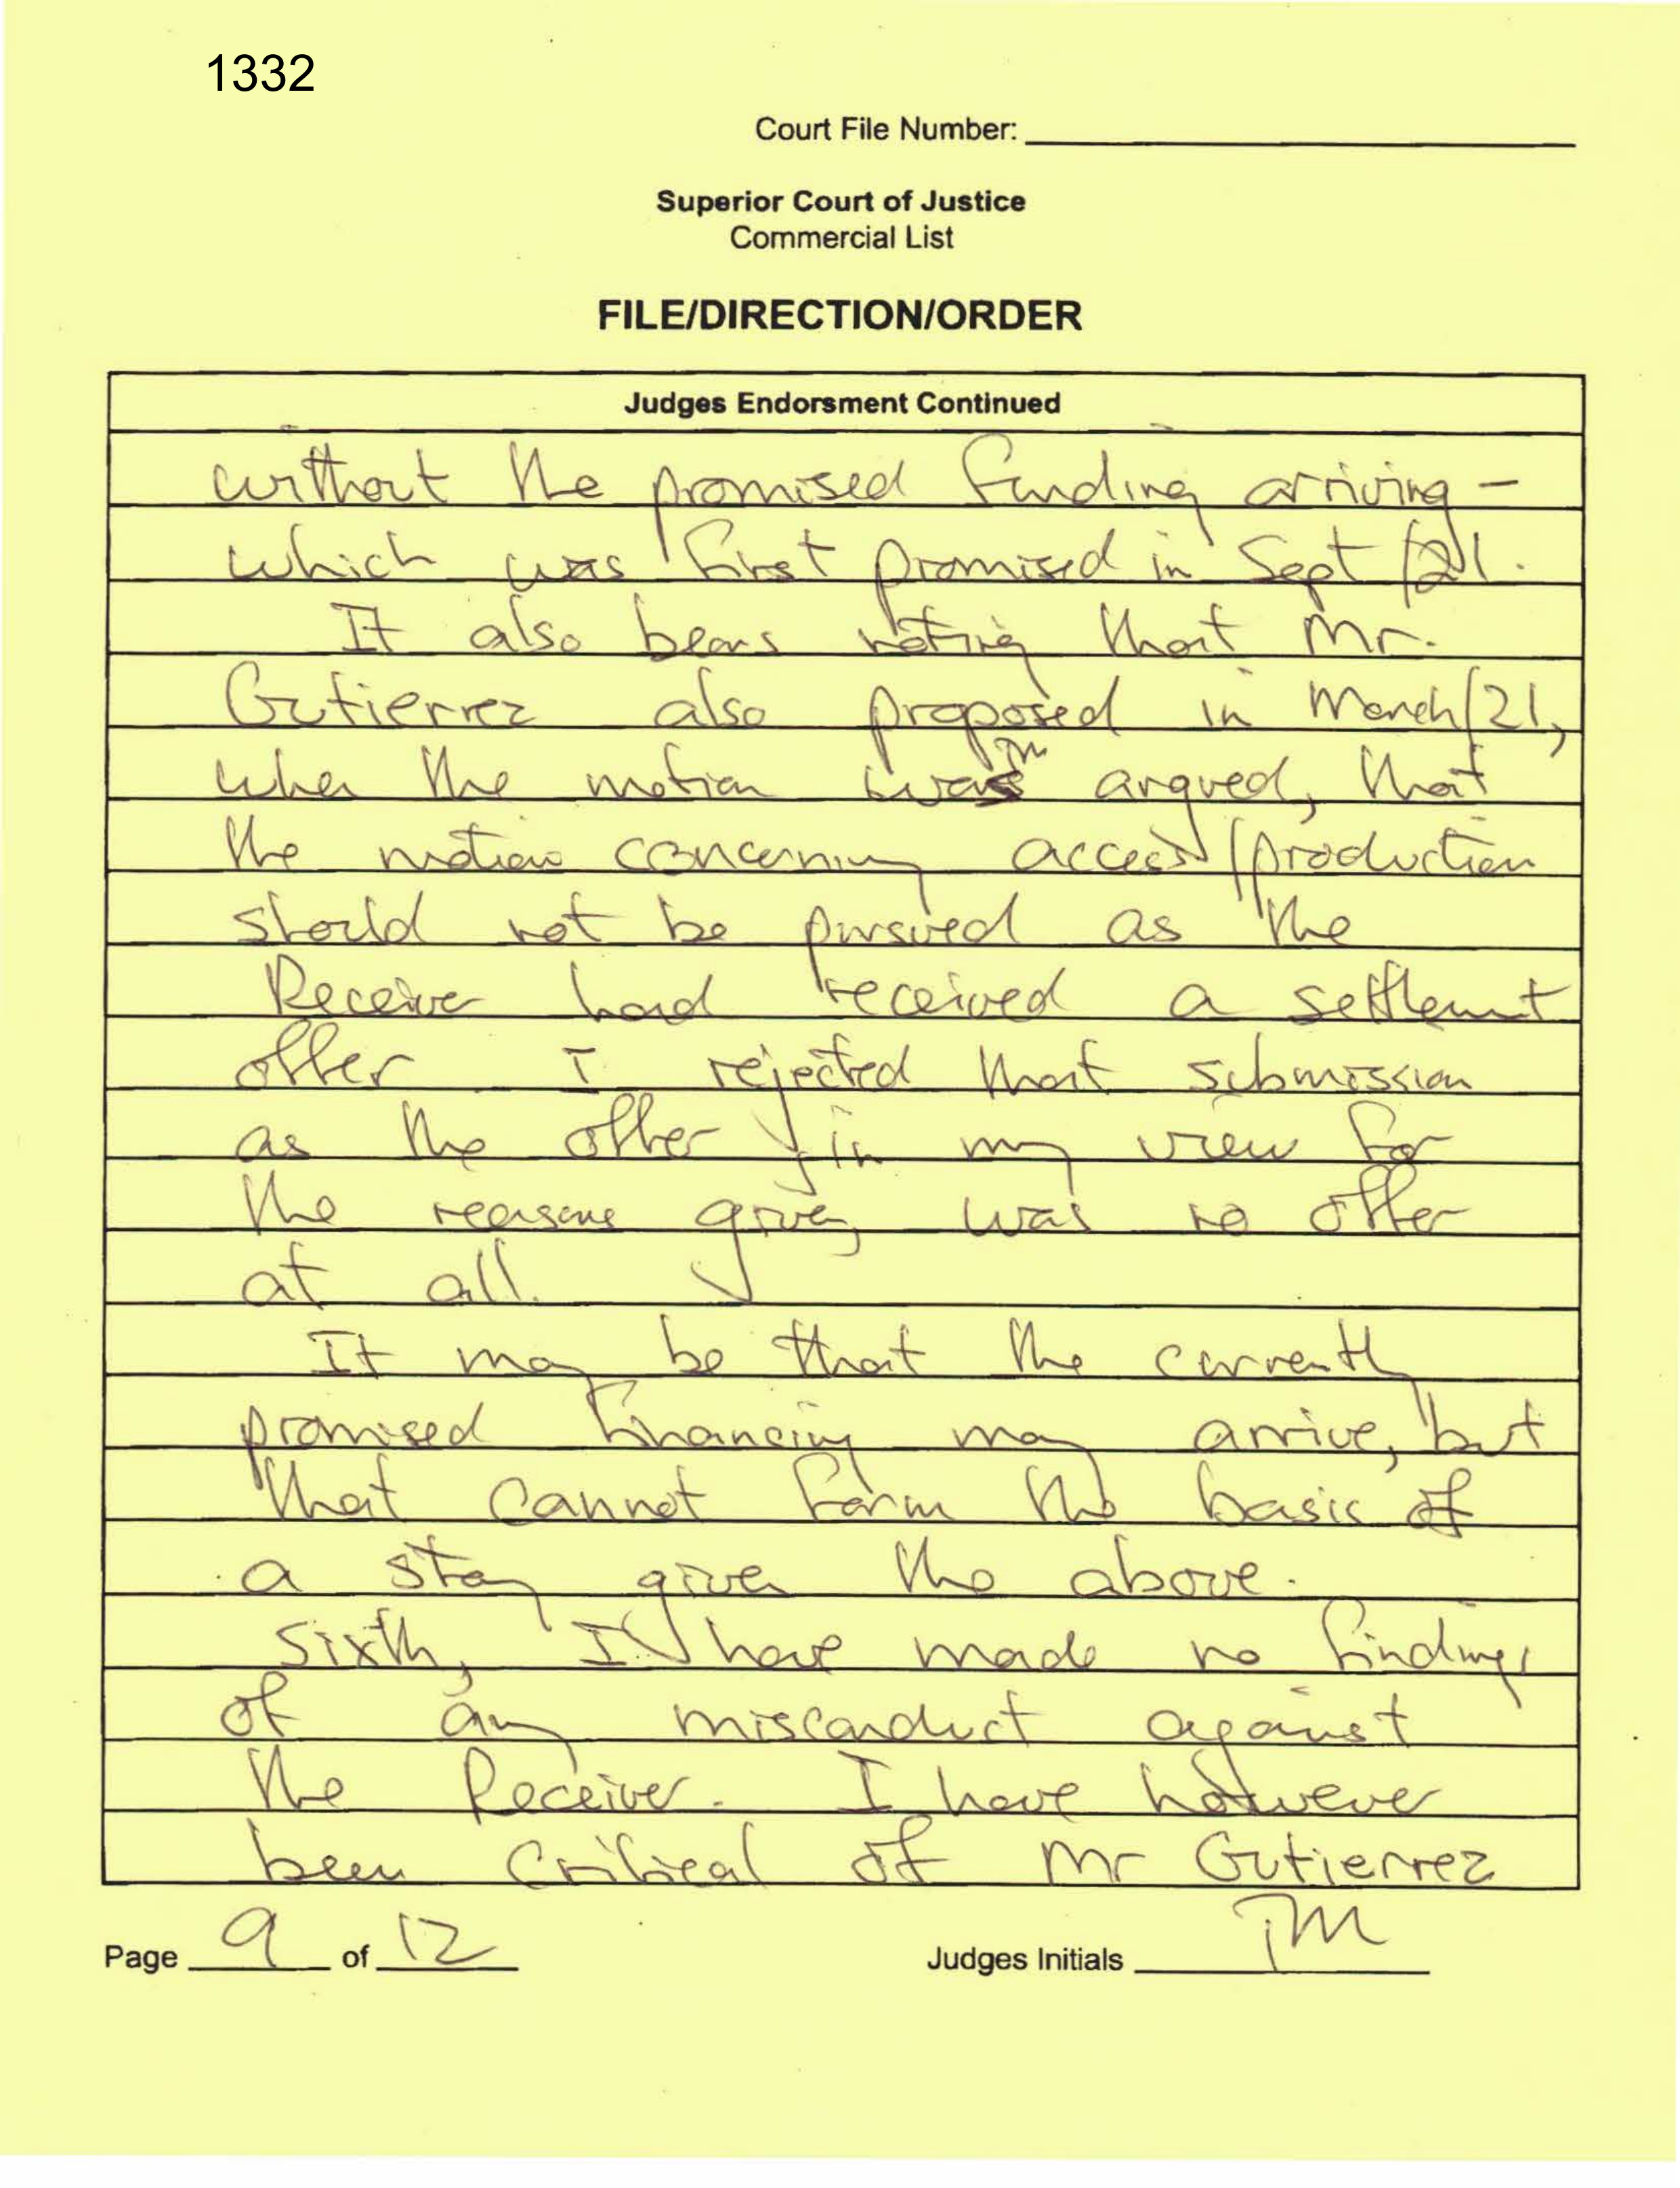 1332
Court File Number:
Superior Court of Justice
Commercial List
FILE/DIRECTION/ORDER
Judges Endorsment Continued
without the promised funding arriving -
which was first promised in Sept /21.
It also bears noting that Mr.
Gutierrez also proposed in March/21,
when the motion was argued, that
the motion concerning access/production
should not be pursued as the
Receiver had received a settlemt
offer I rejected that submission
as the offer, in my view for
the reasons given, was no offer
at all.
It may be that the currently
promised financing may arrive, but
that cannot form the basis of
a stay given the above.
Sixth, I have made no findings
of any misconduct against
the Receiver. I have however
been critical of Mr Gutierrez
Page 9 of 12 Judges Initials TM